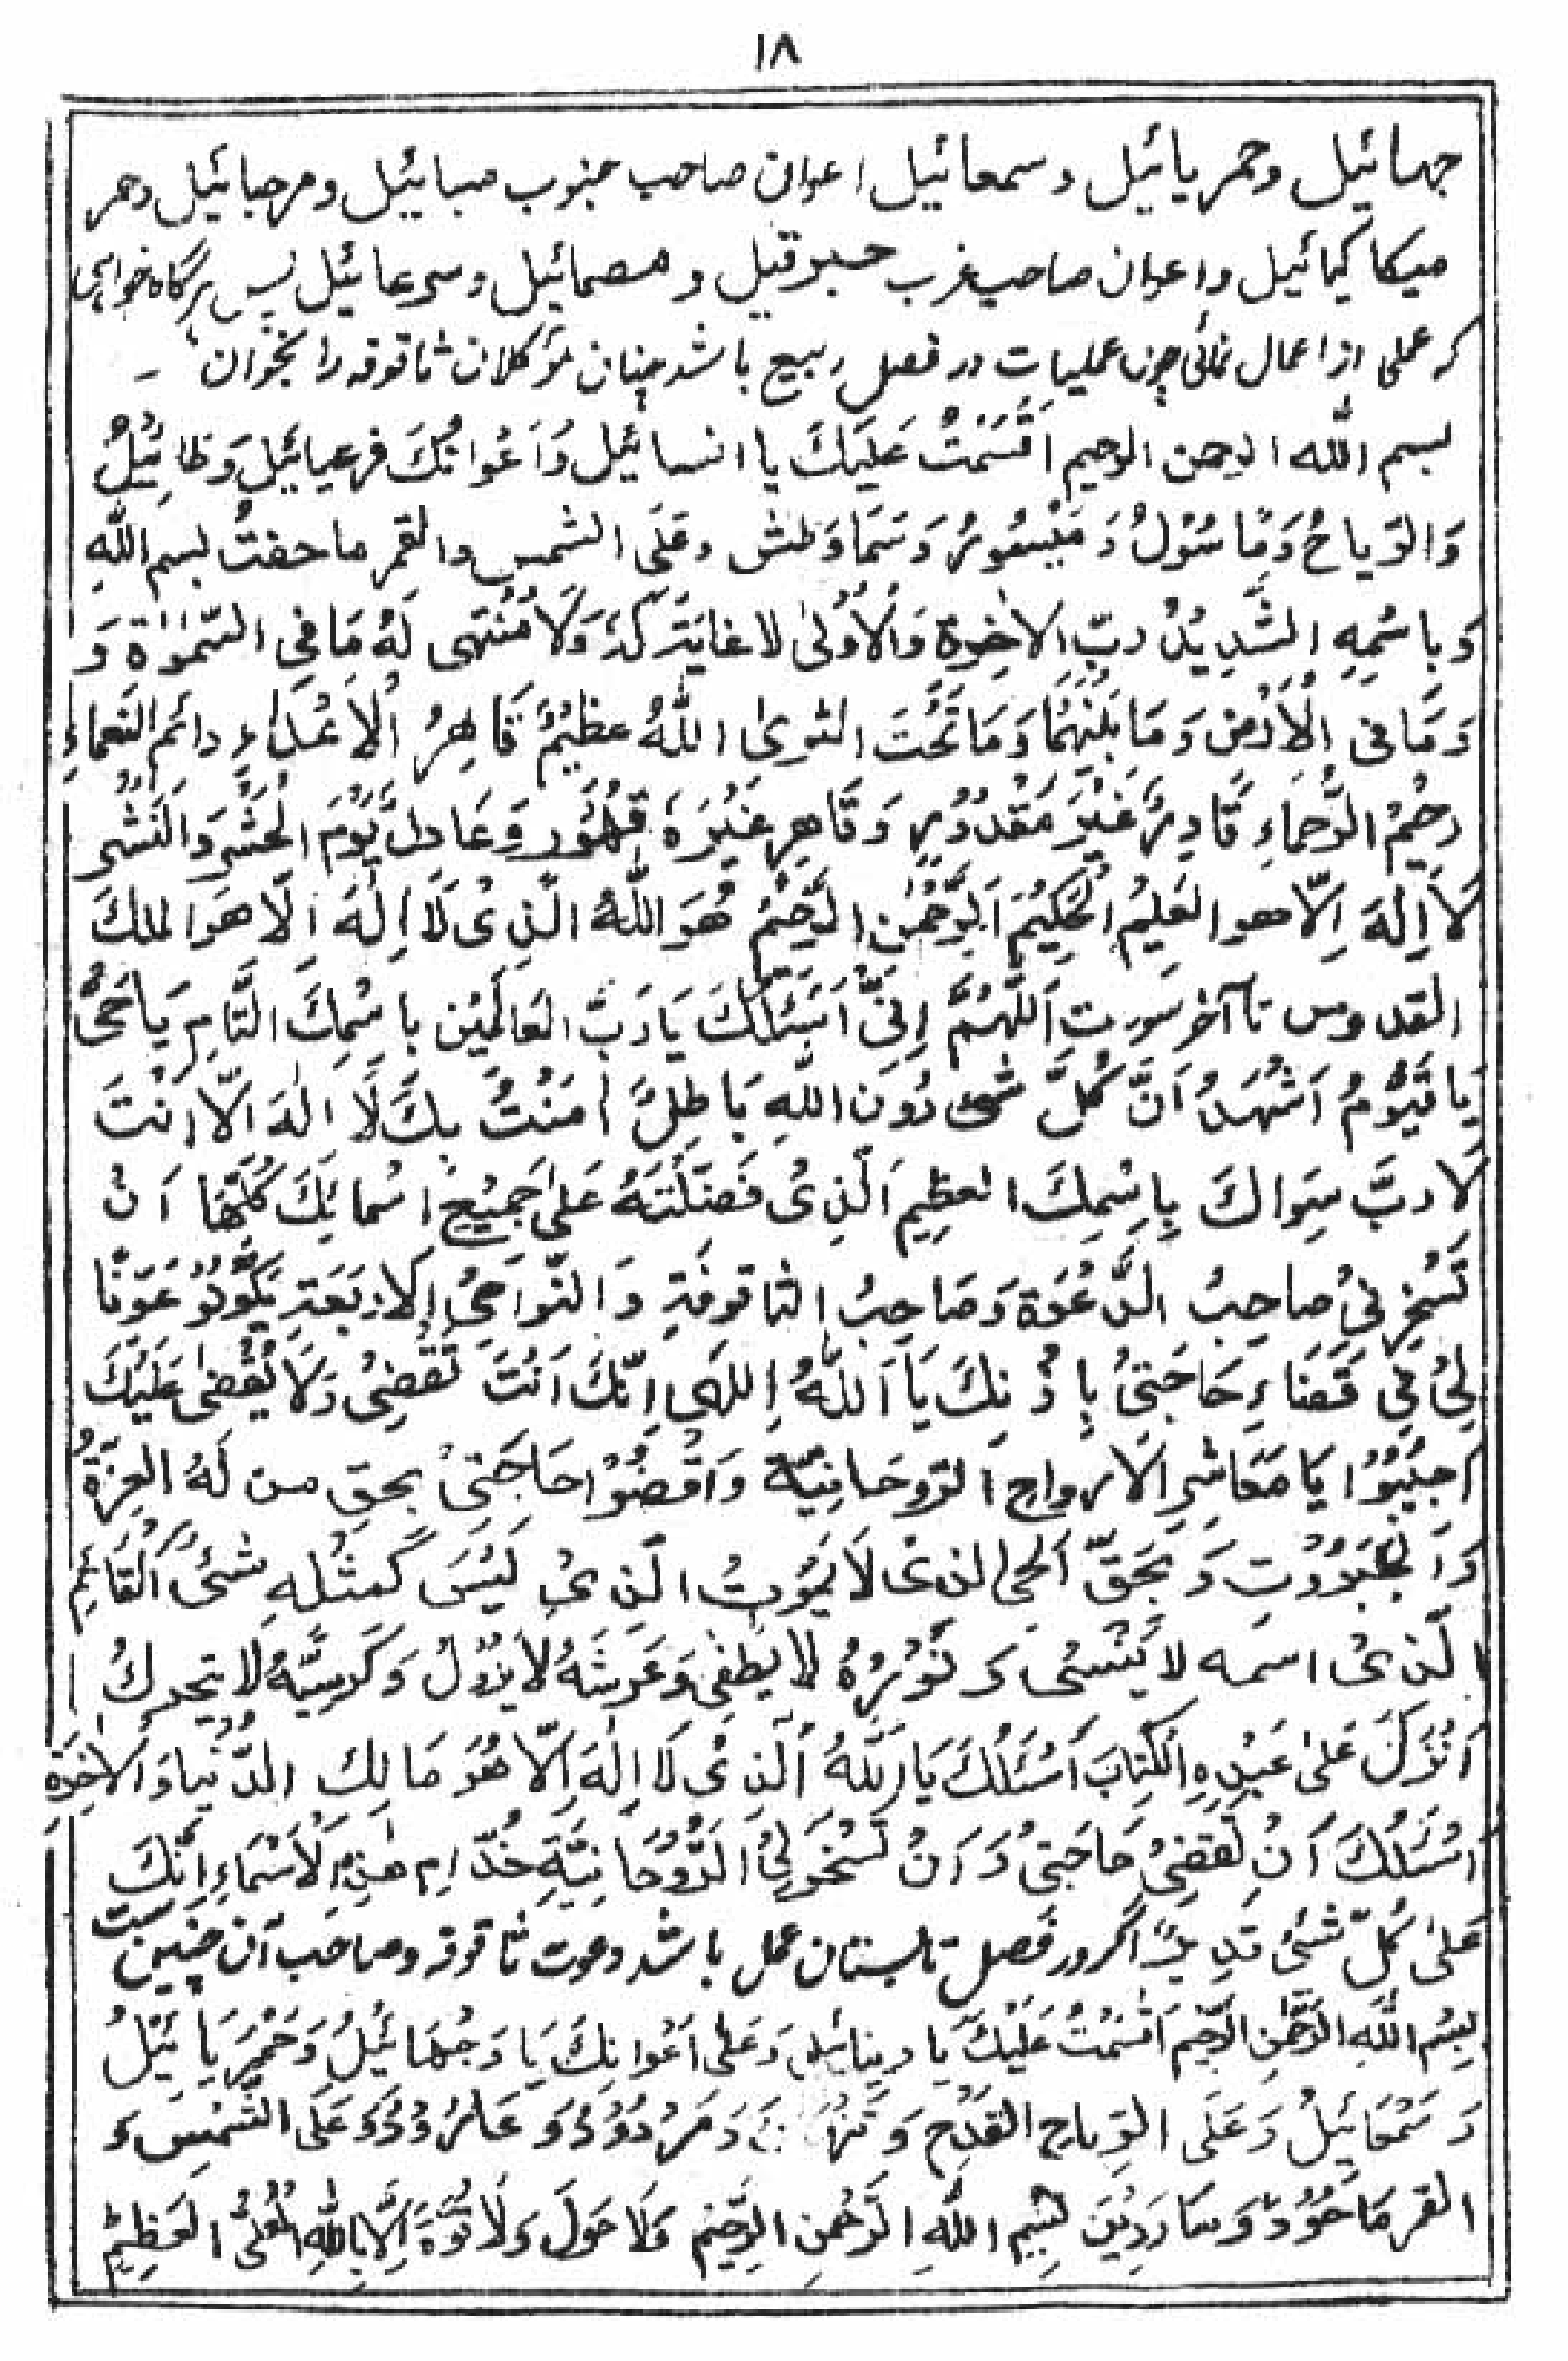 ۱۸
جهائیل وحمریائیل و سمعائیل اعوان صاحب جنوب مبائیل ومرحبائیل وحمر
میکا کیمائیل واعوان صاحب غرب حبوقتیل و مصمائیل وسرعائیل پس هرگاه خواهی
که عملی از اعمال نمائی چون عملیات در فصل ربیع باشد چنان مؤکلان ثاقوفه را بخوان
بسم الله الرحمن الرحیم اَقْسَمْتُ عَلَیْكَ یا انسائیل وَاَعْوانُكَ فرعیائیل وَظائیلُ
وَالرّیاحُ وَمَاسُوْلُ وَمَیْسُوْرُ وَسَمَاوَطش وعَلَی الشمس والقمر ماحفتُ بسم اللهِ
وَباسْمِهِ الشَّدِیْدُ ربّ الاخِرَةِ وَالْاُوْلٰی لا غایَتَه لَهُ وَلَا مُنْتَهی لَهُ مَا فِی السَّمٰوٰةِ وَ
وَمَا فی الْاَرْضِ وَمَا بَیْنَهُمَا وَمَا تَحْتَ الثریٰ اللّٰهُ عظیْمٌ قَاهِرُ الْاَعْدَاءِ دائم النّعماءِ
رحْیُمُ الرُّحماءِ قَادِرٌ غَیْرَ مَقْدُوْرٍ وَقَاهِرٍ غَیْرَهُ قَهُوْرٍ وَعَادِلُ یَوْمَ الْحَشْرِ وَالنَشْرِ
لَا اِلٰهَ اِلّا هو العَلِیْمُ الْحَكِیْمُ الرَّحْمٰن الرَّحِیْمُ هُوَ اللّٰهُ الَّذِیْ لَا اِلٰهَ اِلّا هُوَ الملكَ
القدوس تا آخر سورت اَللّٰهُمَّ اِنِّیْ اَسْئَلُكَ یَا رَبَّ العَالَمِیْن باسْمِكَ التَّامِ یَاحَیُّ
یَا قَیُّوْمُ اَشْهَدُ اَنَّ كُلَّ شیٔ دُوْن اللّٰهِ بَاطِلٌ اٰمَنْتُ بِكَ لَا اِلٰهَ اِلّا اَنْتَ
لَا ربَّ سِوَاكَ بِاسْمِكَ العظِیْمِ الَّذِیْ فَضَلْتَهُ عَلیٰ جَمِیْعِ اسْمائِكَ كُلِّهَا اَنْ
تَسَخِرْنِیْ صاحِبُ الدَّعْوَة وَصَاحِبُ الثاقوفَةِ وَالنَّوَاحِیْ الاَرْبَعَةِ یَكُوْنُوْ عَوْنًا
لِیْ فِیْ قَضَاءِ حَاجَتِیْ بِاِذْنِكَ یَا اَللّٰهُ اِلٰهی اِنَّكَ اَنْتَ تَقْضِیْ وَلَا یُقْضیٰ عَلَیْكَ
اَجِیْبُوْا یَا مَعَاشِرِ الْاَرواحِ الرّوحَانِیَّة وَاقْضُوْا حَاجَتِیْ بِحقِ من لَهُ العِزَّةُ
وَالْجَبَرُوْتِ وَبِحَقِّ الْحَیِّ الذیْ لَا یَمُوْتُ الَّذِیْ لَیْسَ كَمِثْلِهِ شَیْءٌ اَلْقَائِمِ
الَّذِیْ اسمه لَا یُنْسٰی وَنُوْرُهُ لا یُطْفٰی وَعَرْشَهُ لَا یَزُوْلُ وَكُرْسِیَّهُ لا یتحركُ
اَنْزَلَ عَلیٰ عَبْدِهِ الْكِتابَ اَسْئَلُكَ یَا اَللّٰهُ اَلَّذِیْ لَا اِلٰهَ اِلّا هُوَ مَالِكِ الدّنْیَا وَالْاٰخِرَةِ
اَسْئَلُكَ اَنْ تَقْضِیْ حَاجَتِیْ وَ اَنْ تُسْخِرَ لِیْ الرُّوْحَانِیَّةِ خُدّامِ هٰذِهِ الْاَسْمَاءِ اِنَّكَ
عَلٰی كُلِّ شَیْءٍ قَدِیْرٌ اگر در فصل تابستان عمل باشد دعوت ثاقوفه و صاحب آن چنین ست
بِسْمِ اللّٰهِ الرَّحْمٰنِ الرَّحِیْم اَقْسَمْتُ عَلَیْكَ یا دیبائیل وَعَلیٰ اَعْوانِكَ یَا وَجُهائیْلُ وَحَمْرَیَائیْلُ
وَسَمْعَائیلُ وَعَلَی الرِّیاحِ القَدْحِ وَ وَمَرْدَوُدُوَ عَلَی الشَّمْسِ وَ
القمر مَاحَوُدُ وَسَارَدِیْنَ بِسْمِ اللّٰهِ الرَّحْمٰنِ الرَّحِیْمِ وَلَا حَوْلَ وَلَا قُوَّةَ اِلَّا بِاللّٰهِ الْعَلِیُّ الْعَظِیْمْ